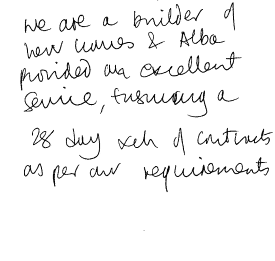 We are a builder of
new homes & Alba
provided an excellent
service, ensuring a
28 day xch of contracts
as per our requirements